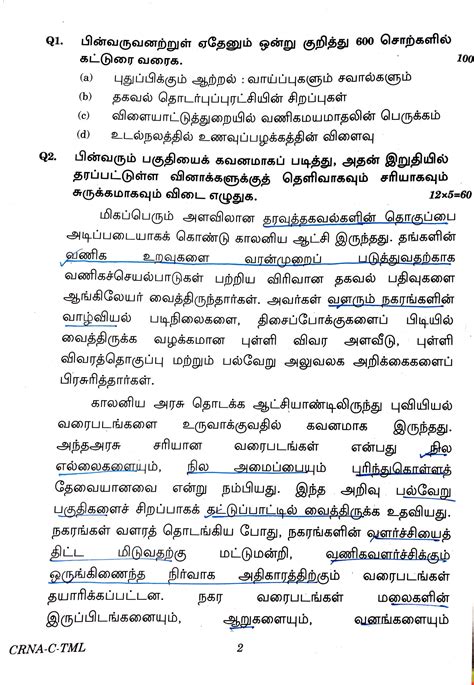 Q1. பின்வருவனற்றுள் ஏதேனும் ஒன்று குறித்து 600 சொற்களில்
கட்டுரை வரைக. 100
(a) புதுப்பிக்கும் ஆற்றல் : வாய்ப்புகளும் சவால்களும்
(b) தகவல் தொடர்புப்புரட்சியின் சிறப்புகள்
(c) விளையாட்டுத்துறையில் வணிகமயமாதலின் பெருக்கம்
(d) உடல்நலத்தில் உணவுப்பழக்கத்தின் விளைவு
Q2. பின்வரும் பகுதியைக் கவனமாகப் படித்து, அதன் இறுதியில்
தரப்பட்டுள்ள வினாக்களுக்குத் தெளிவாகவும் சரியாகவும்
சுருக்கமாகவும் விடை எழுதுக. 12×5=60
மிகப்பெரும் அளவிலான தரவுத்தகவல்களின் தொகுப்பை
அடிப்படையாகக் கொண்டு காலனிய ஆட்சி இருந்தது. தங்களின்
வணிக உறவுகளை வரன்முறைப் படுத்துவதற்காக
வணிகச்செயல்பாடுகள் பற்றிய விரிவான தகவல் பதிவுகளை
ஆங்கிலேயர் வைத்திருந்தார்கள். அவர்கள் வளரும் நகரங்களின்
வாழ்வியல் படிநிலைகளை, திசைப்போக்குகளைப் பிடியில்
வைத்திருக்க வழக்கமான புள்ளி விவர அளவீடு, புள்ளி
விவரத்தொகுப்பு மற்றும் பல்வேறு அலுவலக அறிக்கைகளைப்
பிரசுரித்தார்கள்.
காலனிய அரசு தொடக்க ஆட்சியாண்டிலிருந்து புவியியல்
வரைபடங்களை உருவாக்குவதில் கவனமாக இருந்தது.
அந்தஅரசு சரியான வரைபடங்கள் என்பது நில
எல்லைகளையும், நில அமைப்பையும் புரிந்துகொள்ளத்
தேவையானவை என்று நம்பியது. இந்த அறிவு பல்வேறு
பகுதிகளைச் சிறப்பாகக் கட்டுப்பாட்டில் வைத்திருக்க உதவியது.
நகரங்கள் வளரத் தொடங்கிய போது, நகரங்களின் வளர்ச்சியைத்
திட்ட மிடுவதற்கு மட்டுமன்றி, வணிகவளர்ச்சிக்கும்
ஒருங்கிணைந்த நிர்வாக அதிகாரத்திற்கும் வரைபடங்கள்
தயாரிக்கப்பட்டன. நகர வரைபடங்கள் மலைகளின்
இருப்பிடங்களையும், ஆறுகளையும், வனங்களையும்
CRNA-C-TML 2